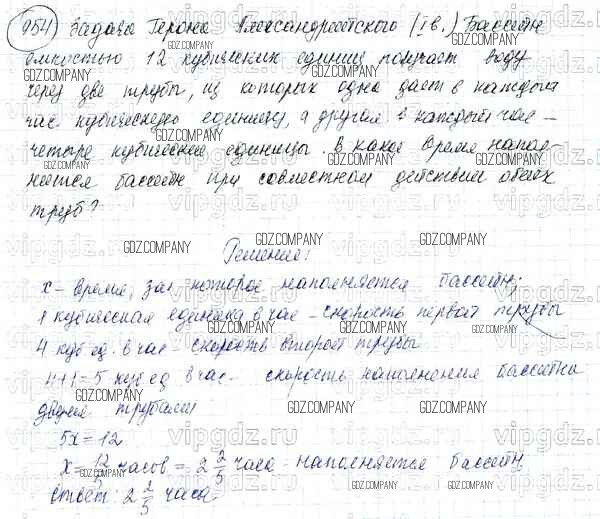 954 Задача Герона Александрийского (I в.) Бассейн
емкостью 12 кубических единиц получает воду
через две трубы, из которых одна дает в каждый
час кубическую единицу, а другая в каждый час –
четыре кубические единицы. В какое время напол-
нится бассейн при совместном действии обеих
труб?
Решение:
x – время, за которое наполняется бассейн;
1 кубическая единица в час – скорость первой трубы
4 куб ед. в час – скорость второй трубы
4+1=5 куб ед в час – скорость наполнения бассейна
двумя трубами
5x = 12
x = 12/5 часов = 2 2/5 часа – наполняется бассейн
Ответ: 2 2/5 часа.
GDZ.COMPANY
vipgdz.ru